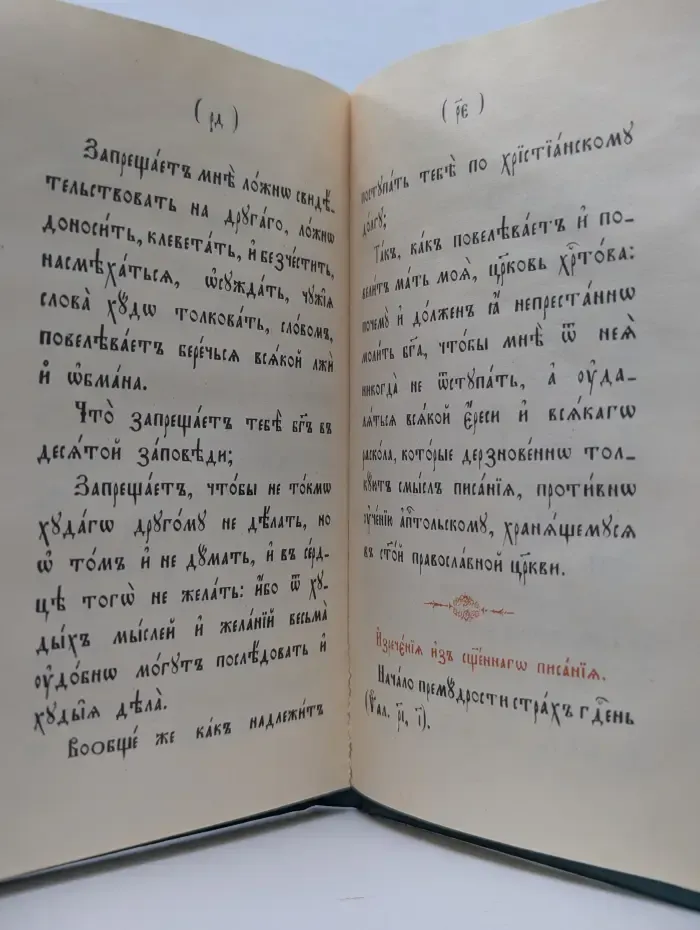 ( рд )
Запреща́етъ мнѣ̀ ло́жнѡ свидѣ́-
тельствовать на друга́го, ло́жнѡ
доноси́ть, клевета́ть, и҆ безче́стить,
насмѣха́ться, ѡ҆сужда́ть, чужі́ѧ
слова̀ хꙋ́дѡ толкова́ть, сло́вомъ,
повелѣва́етъ бере́чьсѧ всѧ́кой лжѝ
и҆ ѡ҆бма́на.
Что̀ запреща́етъ тебѣ̀ бг҃ъ въ
десѧ́той за́повѣди;
Запреща́етъ, что́бы не то́кмѡ
хꙋда́гѡ дрꙋго́мꙋ не дѣ́лать, но
ѡ҆ то́мъ и҆ не дꙋ́мать, и҆ въ се́рд-
цѣ тогѡ̀ не жела́ть: и҆́бо ѿ хꙋ-
ды́хъ мы́слей и҆ жела́ній весьма̀
ᲂу҆до́бнѡ мо́гꙋтъ послѣ́довать и҆
хꙋды̑ѧ дѣла̀.
Вообще́ же ка́къ надлежи́тъ
( р҃є )
постꙋпа́ть тебѣ̀ по хрїстїа́нскомꙋ
до́лгꙋ;
Та́къ, ка́къ повелѣва́етъ и҆ по-
вели́тъ ма́ть моѧ̀, цр҃ковь хрⷭ҇то́ва:
почемꙋ̀ и҆ до́лженъ ꙗ҆̀ непреста́ннѡ
моли́ть бг҃а, что́бы мнѣ̀ ѿ неѧ̀
никогда̀ не ѿстꙋпа́ть, а҆ ᲂу҆да-
лѧ́ться всѧ́кой є҆́реси и҆ всѧ́кагѡ
раско́ла, кото́рые дерзнове́ннѡ тол-
кꙋ́ютъ смы́слъ писа́нїѧ, проти́внѡ
ᲂу҆че́нїю а҆пⷭ҇тольскомꙋ, хранѧ́щемꙋсѧ
въ ст҃о́й правосла́вной цр҃кви.
И҆зрече́нїѧ и҆зъ сщ҃е́ннагѡ писа́нїѧ.
Нача́ло премꙋ́дрости стра́хъ гдⷭ҇ень
(Ѱал. р҃і, і҃).